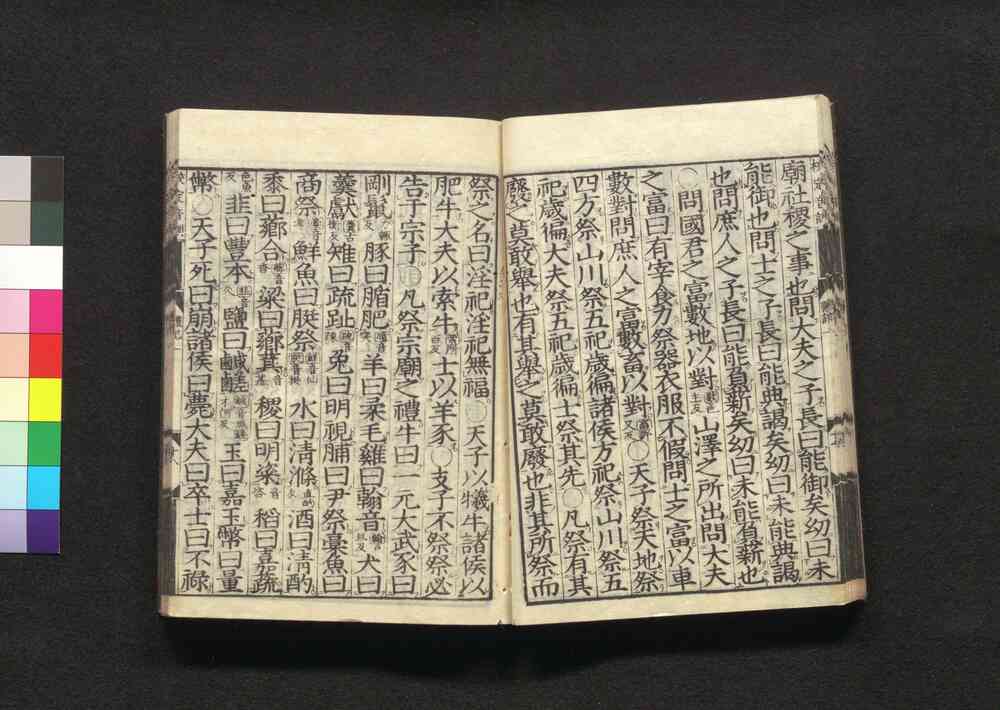 廟社稷之事也問大夫之子長曰能御矣幼曰未
能御也問士之子長曰能典謁矣幼曰未能典謁
也問庶人之子長曰能負薪矣幼曰未能負薪也
○問國君之富數地以對山澤之所出問大夫
之富曰有宰食力祭器衣服不假問士之富以車
數對問庶人之富數畜以對○天子祭天地祭
四方祭山川祭五祀歲徧諸侯方祀祭山川祭五
祀歲徧大夫祭五祀歲徧士祭其先○凡祭有其
廢之莫敢舉也有其舉之莫敢廢也非其所祭而
祭之名曰淫祀淫祀無福○天子以犧牛諸侯以
肥牛大夫以索牛士以羊豕○支子不祭祭必
告于宗子○凡祭宗廟之禮牛曰一元大武豕曰
剛鬣豚曰腯肥羊曰柔毛雞曰翰音犬曰
羹獻雉曰疏趾兔曰明視脯曰尹祭槀魚曰
商祭鮮魚曰脡祭水曰清滌酒曰清酌
黍曰薌合粱曰薌萁稷曰明粢稻曰嘉蔬
韭曰豐本鹽曰鹹鹺玉曰嘉玉幣曰量
幣○天子死曰崩諸侯曰薨大夫曰卒士曰不祿